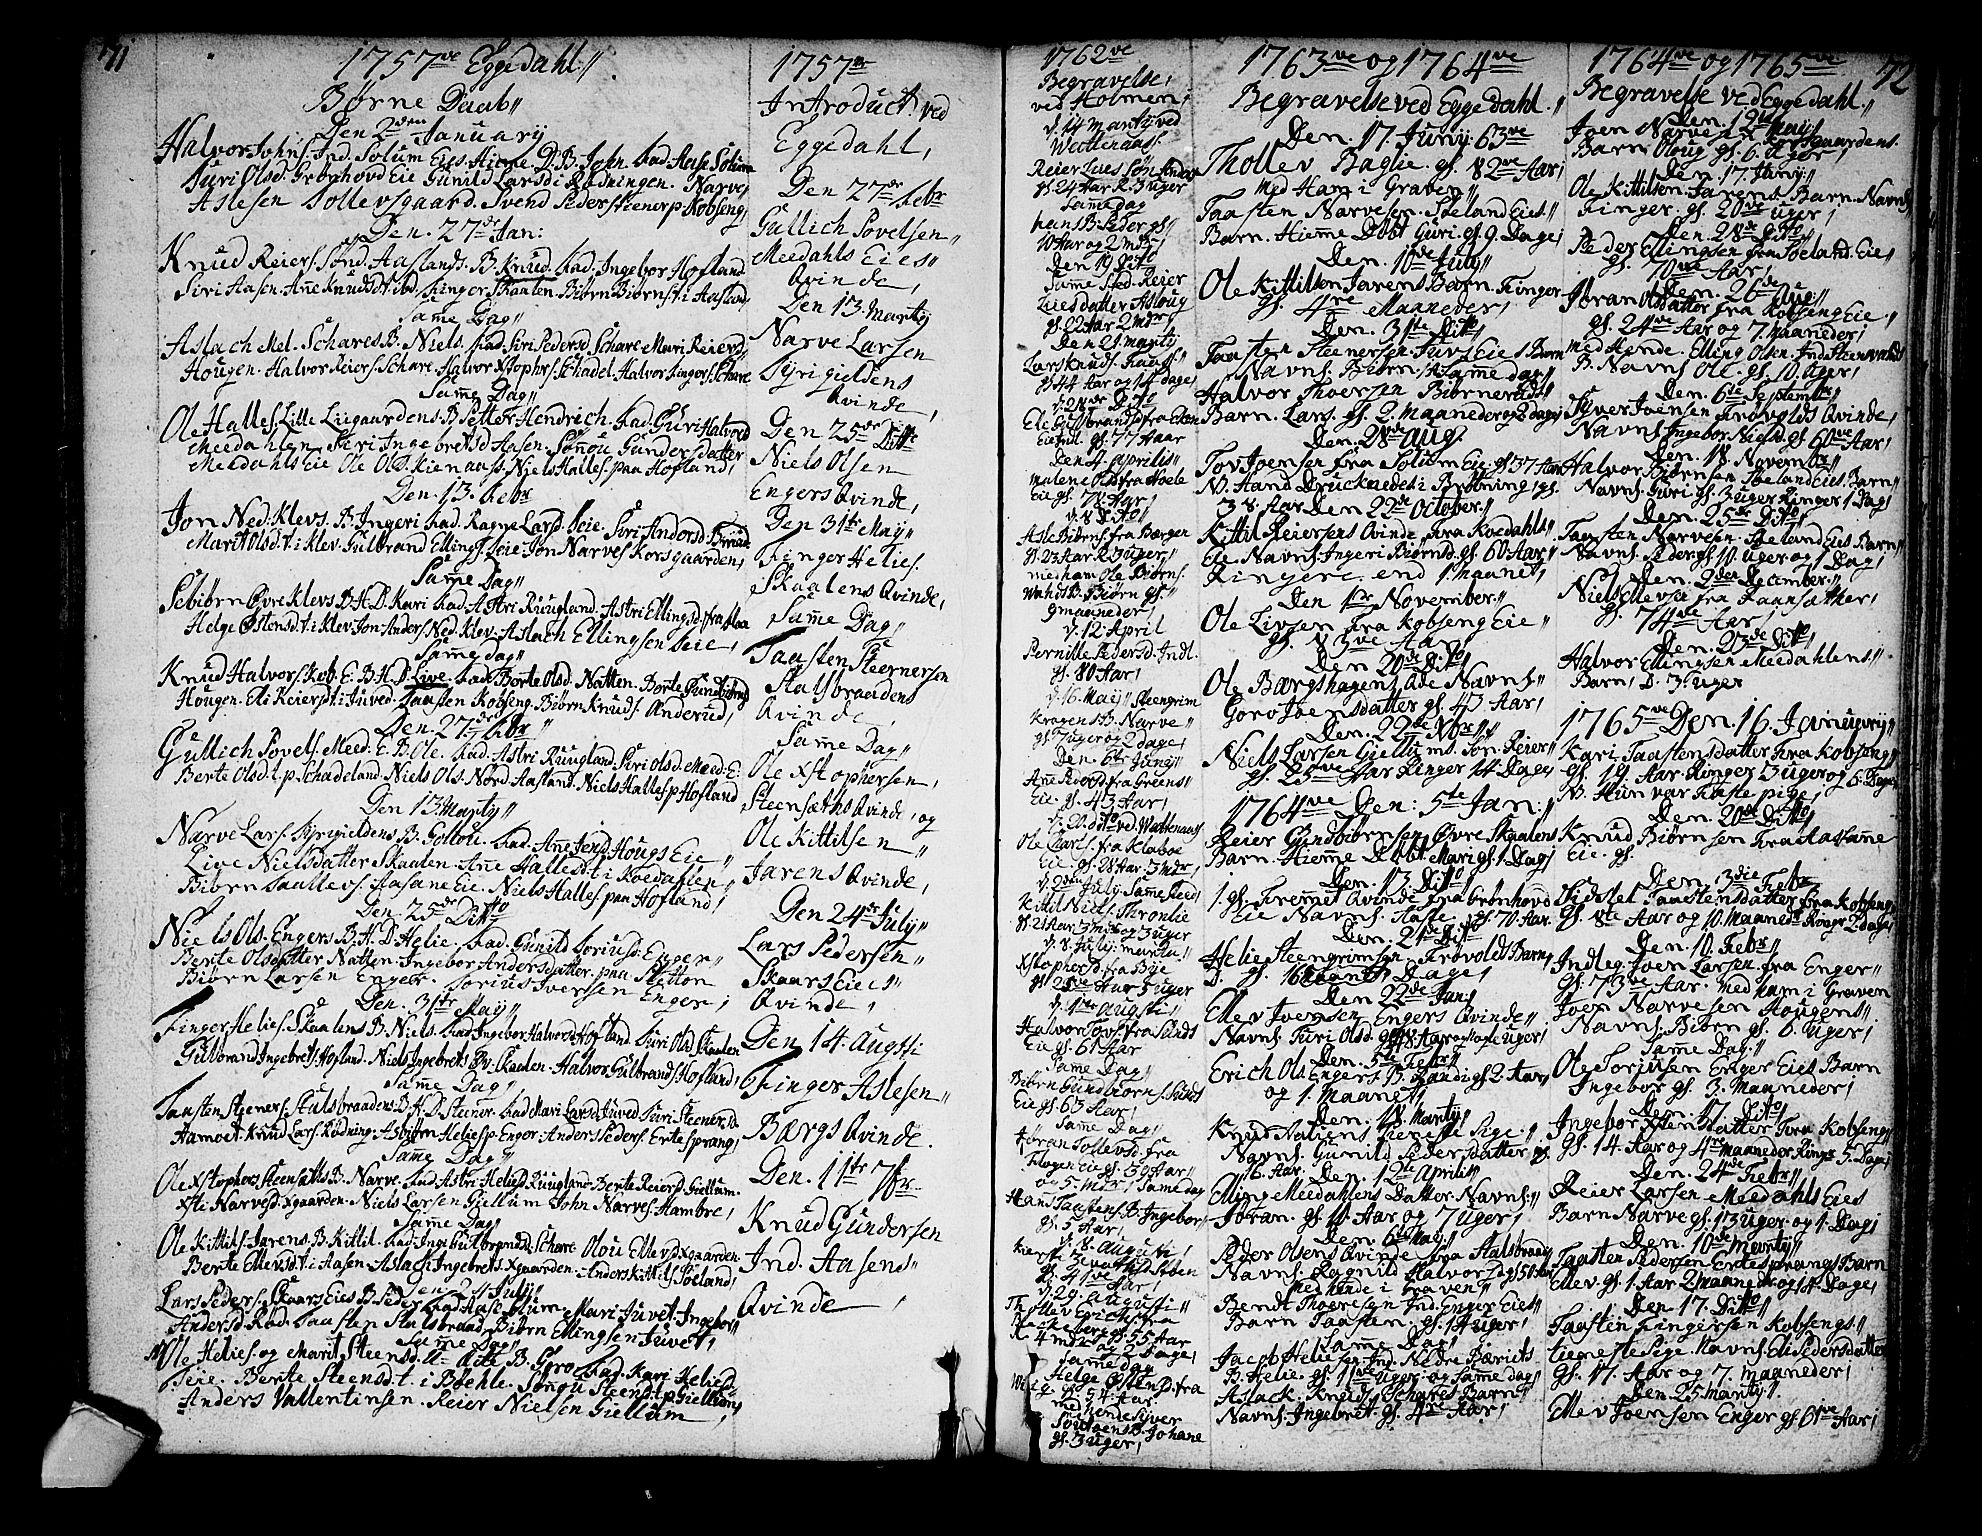 71
1757ve Eggedahl //
Børne Daab //
Den 2den January
Halvor Johns. Ind. Solum Eies. Hieme D. B. John. fad. Aase Solum
Guri Olsd. Grønhovd Eie Gunild Larsd i Rødningen. Narve
Aslesen Tollevsgaard. Svend Peders. Steenerp. Kobseng
Den. 27de Jan:
Knud Reiers. Aaslands. B. Knud. fad. Ingebor Hofland
Siri Aasen. Ane Knudsd. ibd. Finger Skaalen. Biørn Biørns. i Aasland
Same Dag //
Aslach Mel. Schares B. Niels. fad. Siri Pedersd. Schare Mari Reiersd.
Hougen. Halvor Reiers. Schare. Halvor Xstophers. Schadel. Halvor Fingers. Schare
Same Dag //
Ole Halles. Lille Liigaardens. B. Petter Hendrich. fad. Guri Halvorsd
Meedahlen Siri Ingebretsd Aasen. Sønou Gundersdatter
Meedahls Eie Ole Ols. Skienaas. Niels Halles. paa Hofland
Den. 13. Febr
Jon Ned. Klevs. B. Ingeri fad. Ragne Larsd. Seie. Siri Andorsd
Marit Olsd. i Klev. Gulbrand Ellings. Seie Jon Narves Korsgaarden
Same Dag //
Sebiørn Øvre Klevs B. H. D. Kari fad. Astri Ruugland. Astri Ellingsd. fra
Helge Østensd. i Klev. Jon Anders Ned. Klev. Aslach Ellingsen Seie
Same dag //
Knud Halvors. Kob. E. B. H. D. Live. fad. Berte Olsd. Natten. Berte Gundbiørnsd
Hougen. Eli Reiersd. i Juved. Taasten Kobseng. Biørn Knuds. Anderud
Den. 27. de Febr //
Gullich Povels. Meed. E. B. Ole. fad. Astri Ruugland. Siri Olsd. Meed. E.
Berte Olsd. p. Schadeland. Niels Ols. Nord Aasland. Niels Halles. p Hofland
Den 13 Marty //
Narve Lars. Syrigieldens B. Gollou. fad. Ane Jensd Hougs Eie //
Live Nielsdatter Skaalen. Ane Hallesd. i Koedahlen
Biørn Saalles. Aasane Eie. Niels Halles. paa Hofland
Den. 25de Ditto
Niels Ols. Engers B. H. D. Helie. fad. Gunild Toriusd. Enger
Berte Olsdatter Natten. Ingebor Andersdatter. paa Sletton
Biørn Larsen Enger. Torius Iversen Enger
Den. 31te May //
Finger Helies. Skaalens B. Niels. fad. Ingebor Halvorsd Hofland Turi Olsd. Skaalen
Gulbrand Ingebrets. Hofland. Niels Ingebrets Øv. Skaalen. Halvor Gulbrands. Hofland
Same Dag //
Taasten Steeners. Stalsbraadens B. H. D. Steenor. fad. Mari Larsd. Juved. Siri Steenersd.
Aamoet. Knud Lars. Rødning. Asbiørn Helies. p. Enger. Anders Peders. Ertesprang
Same Dag //
Ole Xstophers. Steensæths B. Narve. fad. Astri Helied. Ruugland. Berte Reiersd. Giellum.
Xsti Narvesd. Xgaarden. Niels Larsen Giellum John Narves. Hambre
Same Dag
Ole Kittils. Jarens. B. Kittil. fad. Inge Gulbrandsd. Schare Olou Ellevsd. Xgaarden.
Berte Ellevsd. i Aasen. Aslach Ingebrets. Xgaarden. Anders Kittils. Søeland
Den 24 July //
Lars Peders. Skaars Eies B. Peder. fad. Aase Solum Mari Juvet. Ingebor
Andersd. Rød. Taasten Stalsbraad. Biørn Ellingsen Juvet
Same Dag //
Ole Helies. og Marit Steensd. B. Goro. fad. Kari Helied.
Seie. Berte Steensd. i Bøehle. Sønou Steensd. p. Giellum
Anders Vallentinsen. Reier Nielsen Giellum
1757ve
Introduct. ved
Eggedahl,
Den 27de Febr
Gullich Povelsen //
Meedahls Eies //
Qvinde,
Den 13. Marty
Narve Larsen
Syrigieldens
Qvinde,
Den 25de Ditto
Niels Olsen
Engers Qvinde,
Den 31te May //
Finger Helies.
Skaalens Qvinde,
Same Dag //
Taasten Steenersen
Stalsbraadens
Qvinde,
Same Dag //
Ole Xstophersen,
Steensæths Qvinde, og
Ole Kittilsen //
Jarens Qvinde,
Den 24de July //
Lars Pedersen //
Skaars Eies //
Qvinde,
Den 14. Augsti
Finger Aslesen //
Bærgs Qvinde.
Den. 11te 7br.
Knud Gundersen
Ind. Aasens //
Qvinde,
1762ve
Begravelse,
ved Holmen,
d. 14 Marty ved
Reier
gl. 24 Aar R. 3 Uger
Same dag
hans B. Peder gl. //
10 Aar og 2 mdr
Den 19 Ditto
Same Sted. Reier
datter Aslaug
gl. 22 Aar 2 mdr
Den 21 marty
Lars Knuds.
gl. 44 Aar og 14 dage,
d. 28de Ditto
Ole Gulbrands. fra
Eie Ind. gl. 77 Aar
Den 4. Aprilis //
Malene Olsd. fra Hoele
Eie gl. 78 Aar,
d. 8 Ditto,
Asle Biørns. fra Bærgen
gl. 23 Aar R. 3 Uger //
med ham Ole Biørns.
B. Biørn gl. //
9 maaneder,
d. 12 April
Pernille Pedersd. Indl.
gl. 80 Aar,
d. 16. May // Steengrim
Kragens B. Narve //
gl. 7 Uger og 2 dage,
Den. 6te Juny,
Ane fra Greens //
Eie. gl. 43 Aar,
d. 20. Ditto ved Wattenaas
Ole Charls. fra Klaboe
Eie. gl. 28 Aar. 3 mdr,
d. 2den July. Same Sted,
Kittil Niels. Thronlie
gl. 21 Aar 3 mdr og 3 Uger
d. 8. July
Xstophersd. fra Bye
gl. 28 Aar 5 Uger
d. 1te Augusti //
Halvor Sovs. fra Sunds
Eie gl. 61 Aar
Same Dag,
Biørn Gundbiørns. Sunds
Eie gl. 63 Aar,
Same Dag //
Jøran Tollevsd. fra
Eie gl. 30 Aar //
og 5 mdr, Same dag
Hans Taastens. B. Ingebor,
gl. 5 Aar,
d. 8. Augusti,
gl. 41ve Aar,
d. 29. Augusti //
Thollev Erichs. fra
gl. 55 Aar
4 mdr og 2 Dage,
Same dag
Helge Østensd. fra
gl. 54. Aar.
med hende Siver
B. Johane
gl. 3 Uger,
1763ve og 1764ve
Begravelse ved Eggedahl. //
Den. 17. Juny. 63ve
Thollev Baglie. gl. 82ve Aar,
Med Ham i Graven //
Taasten Narvesen. Søeland Eies //
Barn. Hieme Døbt Guri. gl. 9. Dage,
Den. 10de July //
Ole Kittilsen Jarens Barn. Finger
gl. 4re Maaneder,
Den. 31te Ditto,
Taasten Steenersen Jurs Eies Barn
Navnl. Biørn. Same dag //
Halvor Thoersen Biørneruds //
Barn. Lars. gl. 2. Maaneder og 2 dage,
Den. 28de Aug.
Tov Joensen fra Solum Eie. gl. 37 Aar
NB. Hand Drucknedes i Brøtning, gl.
38. Aar Den 23de October //
Kittil Reiersens Qvinde, fra Koedahls //
Eie Navnl. Ingeri Biørnsd. gl. 60 Aar //
Ringere end 1. maanet,
Den 1te November //
Ole Livsen fra Kobseng Eie //
gl. 83ve Aar //
Den. 20de Ditto
Ole Bærgshagens Ede Navnl //
Goro Joensdatter gl. 43 Aar,
Den. 22de Nbr //
Niels Larsen Giellums. Søn. Reier
gl. 25ve Aar Ringer 14 Dage,
1764ve Den: 5te Jan: //
Reier Gundbiørnsen Øvre Skaalens
Barn. Hieme Døbt. Mari gl. 1. Dag,
Den. 13 Ditto
1. gl. Fremet Qvinde fra Grønhovd
Eie Navnl. Aase. gl. 70 Aar.
Den. 21de Ditto
Helie Steengrimsen Frøvoldt Barn,
D. gl. 16 Dage,
Den 22de Jan:
Ellev Joensen Engers Qvinde //
Navnl. Turi Olsd. gl. 48. Aar
Den. 5te Febr //
Erich Ols. Engers B. Randi gl. 2 Aar,
og 1. Maanet,
Den. 18. Marty //
Knud Nattens tieneste Pige //
Navnl. Gunild Pedersdatter gl.
16. Aar. Den. 12te Aprilis //
Elling Meedahlens Datter Navnl. //
Jøran. gl. 11 Aar og 7 Uger,
Den. 6te May //
Peder Olsens Qvinde fra Stalsbraad
Navnl. Ragnild Halvorsd gl 50 Aar
Med hende i Graven //
Bendt Thoeresen Ind. Enger Eies //
Barn Taasten. gl. 14 Uger,
Same Dag,
Jacob Heliesen Ind. Nedre Bæriets
B. Helie. gl. 11ve Uger. og Same dag //
Aslack Knuds. Schares Barn //
Navnl. Ingebret gl. 4re Aar,
72
1764ve og 1765ve
Begravelse ved Eggedahl. //
Den. 19de May
Joen Narvesen Korsgaardens
Barn Aaug gl. 6. Uger,
Den. 17. Juny.
Ole Kittilsen Jarens Barn. Navnl.
Finger. gl. 20ve Uger,
Den. 28de Ditto
Peder Ellingsen fra Søeland. Eie
gl. 70ve Aar,
Den. 26de Aug: //
Jøran Olsdatter fra Kobseng Eie.
gl. 24ve Aar og 7. Maaneder,
med Hende. Elling Olsen. Ind. Steensæths
B. Navnl. Ole. gl. 10. Uger,
Den. 6te Septembr
Syver Joensen Frøvolds Qvinde,
Navnl. Ingebor Nielsd. gl. 60ve Aar,
Den. 18. Novembr
Halvor Biørnsen Søeland Eies Barn //
Navnl. Guri gl. 3 Uger Ringer 1 Dag,
Den. 25de Ditto
Taasten Narvesen. Søeland Eies. Barn //
Navnl. Peder. gl. 10. Uger og 1 Dag,
Den. 9de December. //
Niels Ellevsen fra Faansather,
gl. 74ve Aar,
Den. 23de Ditto
Halvor Ellingsen Meedahlens. //
Barn, D. 3. Uger
1765ve Den. 16 Januarij //
Kari Taastensdatter fra Kobseng //
gl. 19. Aar. Ringer 3 Uger og 6. Dage,
NB. Hun var Faste pige,
Den. 20de Ditto,
Knud Biørnsen fra Aasane
Eie. gl.
Den. 3die Febr
Sidsel Taastensdatter fra Kobseng
gl. 8te Aar og 10. Maaneder Ringer 2 dage,
Den. 10. Febr //
Indleg. Joen Larsen. fra Enger //
gl. 73ve Aar. Med ham i Graven
Joen Narvesen Hougens //
Navnl. Biørn gl. 6. Uger,
Same Day //
Ole Toriusen Enger Eies Barn
Ingebor gl. 3. Maaneder,
Den. 17. Ditto,
Ingebor Xstensdatter fra Kobseng //
gl. 14. Aar og 4re Maaneder Ringer 5. Dage,
Den. 24de Febr //
Reier Larsen Meedahls Eies
Barn Narve gl. 13 Uger. og 1. Dag,
Den. 10de Marty //
Taasten Pedersen Ertesprangs Barn
Ellev. gl. 1. Aar 2 maaneder og 14. Dage,
Den 17. Ditto
Taasten Fingersen Kobsengs //
tieneste Pige. Navnl. Eli Pedersdatter
gl. 17. Aar og 7. maaneder
Den 25 Marty.
Ellev Joensen Enger gl 61ve Aar,